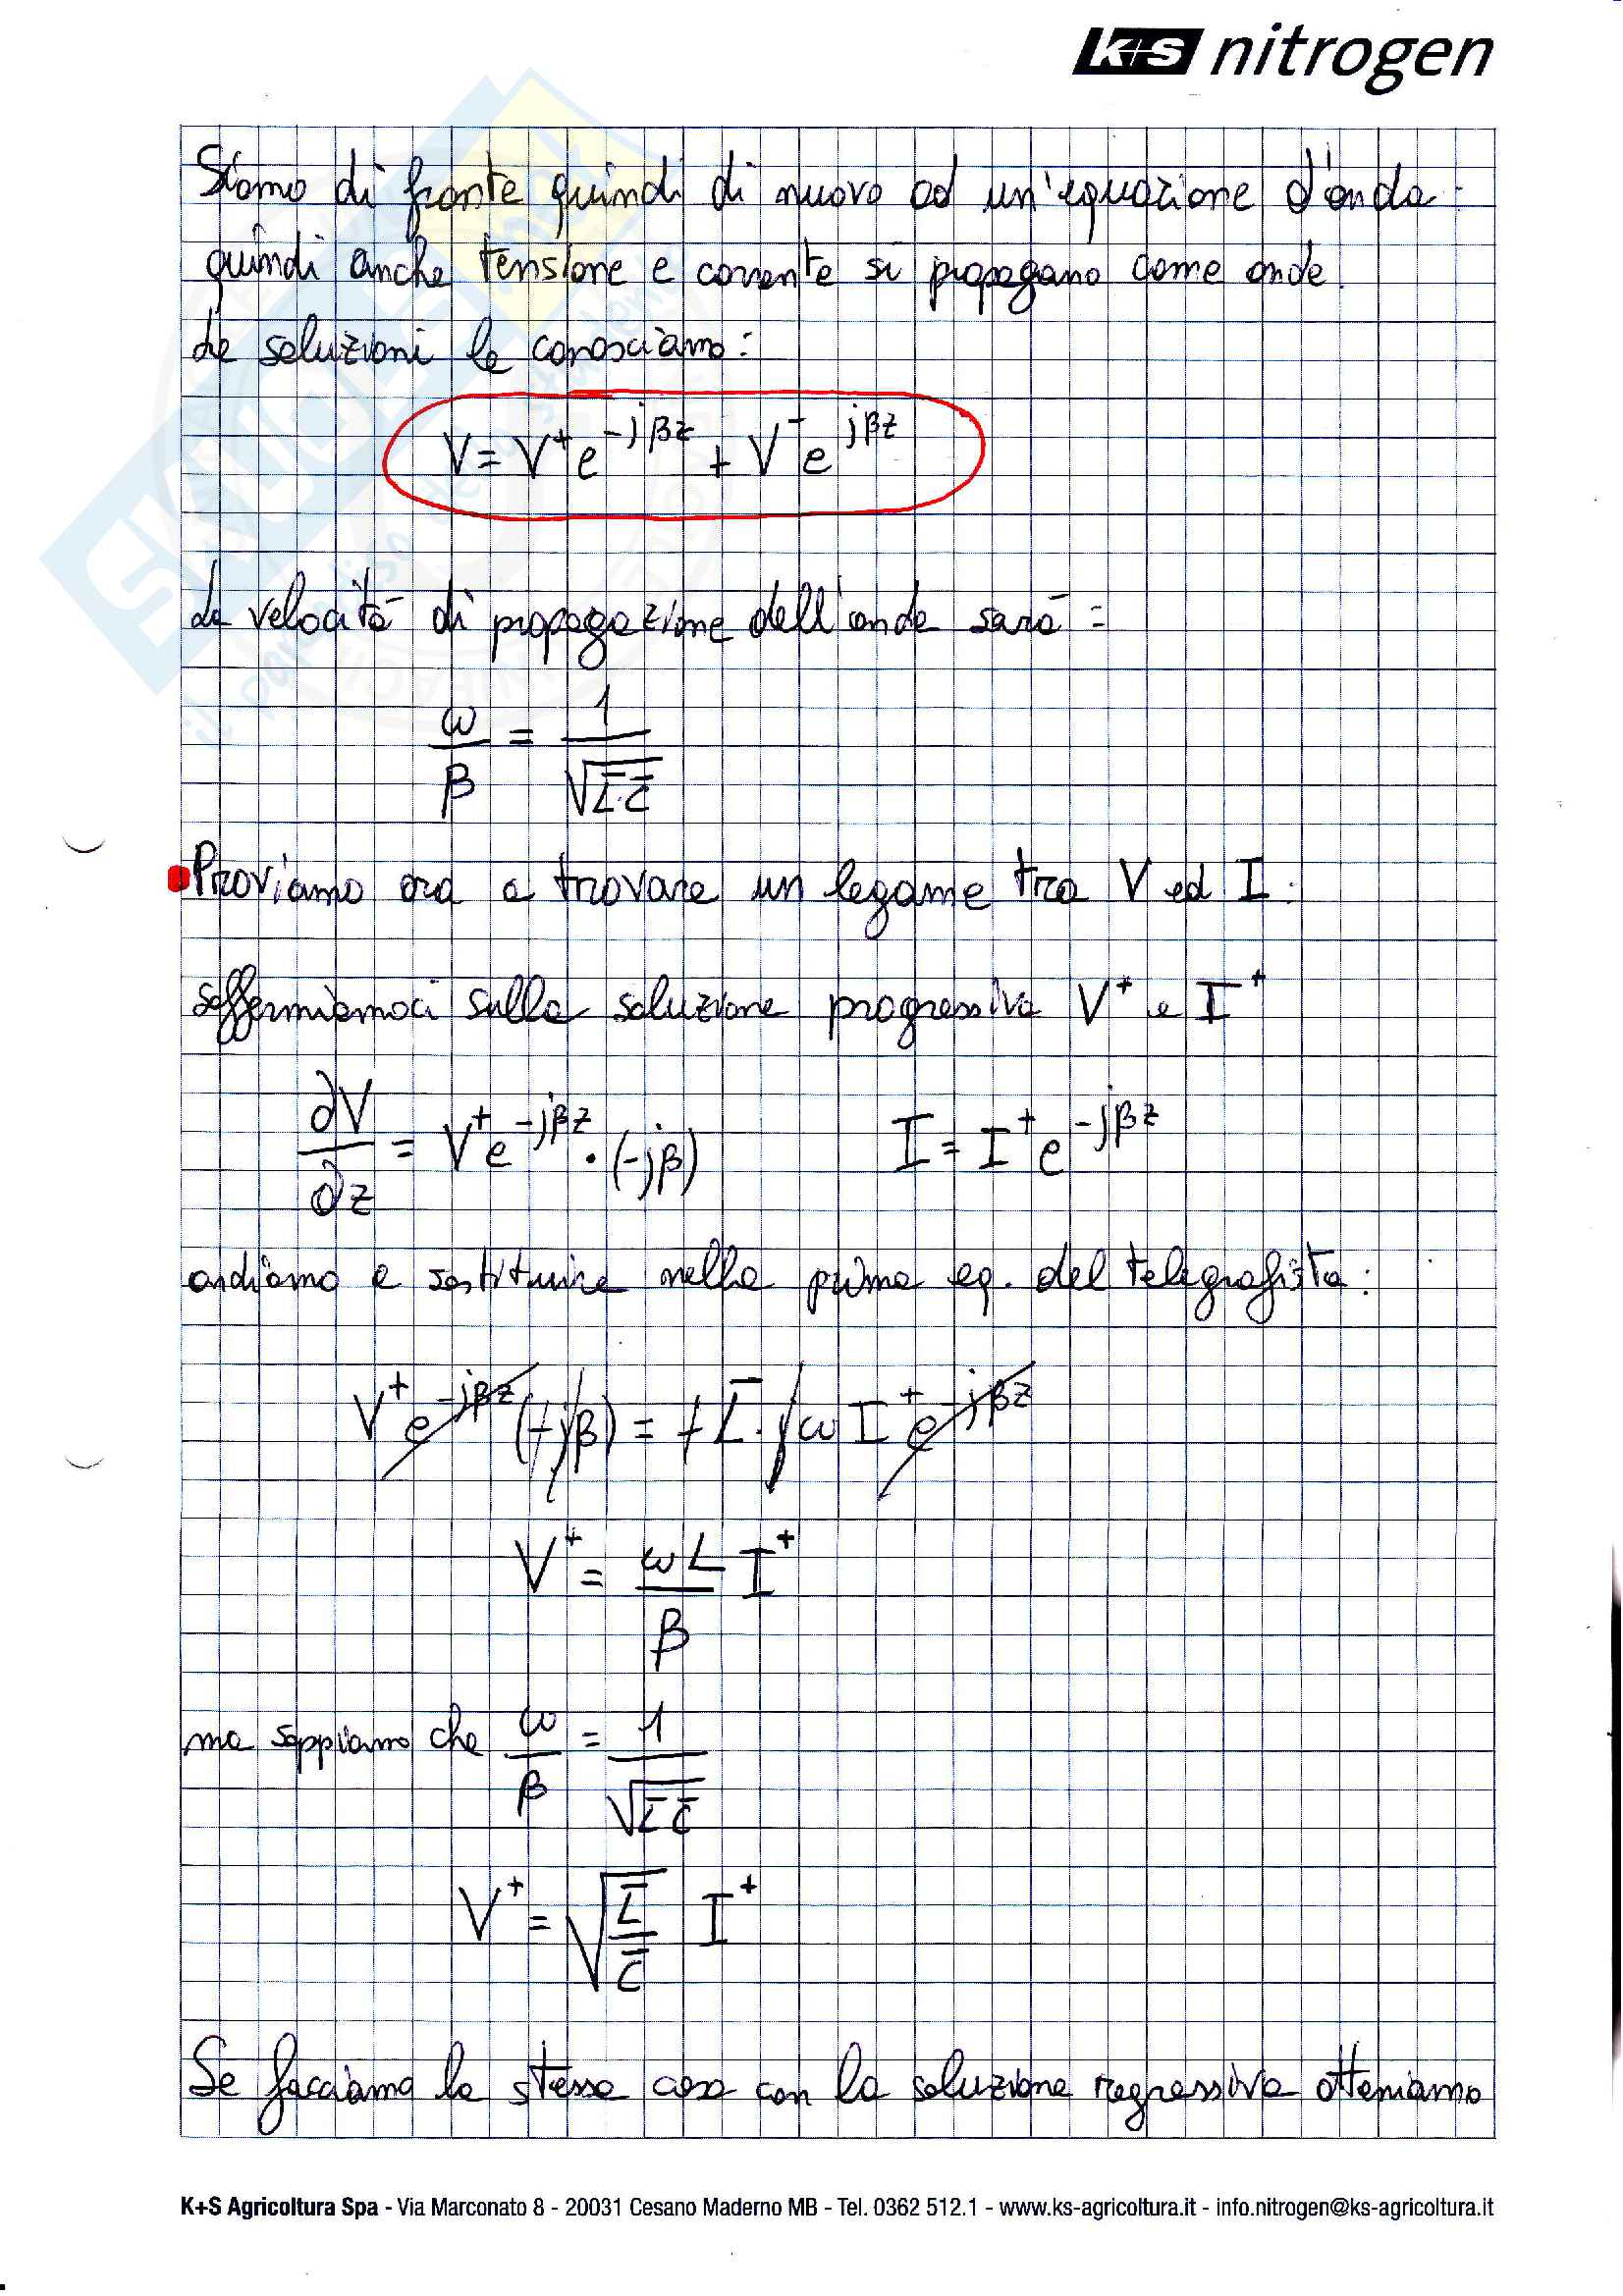 K+S nitrogen
Siamo di fronte quindi di nuovo ad un'equazione d'onda.
quindi anche tensione e corrente si propagano come onde.
Le soluzioni le conosciamo:
V = V⁺e^(-jβz) + V⁻e^(jβz)
La velocità di propagazione dell'onda sarà:
ω/β = 1/√(L̄C̄)
Proviamo ora a trovare un legame tra V ed I:
soffermiamoci sulla soluzione progressiva V⁺ e I⁺
∂V/∂z = V⁺e^(-jβz)·(-jβ) I = I⁺e^(-jβz)
andiamo a sostituire nella prima eq. del telegrafista:
V⁺e^(-jβz)(-jβ) = -L̄·jωI⁺e^(-jβz)
V⁺ = ωL/β I⁺
ma sappiamo che ω/β = 1/√(L̄C̄)
V⁺ = √(L̄/C̄) I⁺
Se facciamo la stessa cosa con la soluzione regressiva otteniamo
K+S Agricoltura Spa - Via Marconato 8 - 20031 Cesano Maderno MB - Tel. 0362 512.1 - www.ks-agricoltura.it - info.nitrogen@ks-agricoltura.it